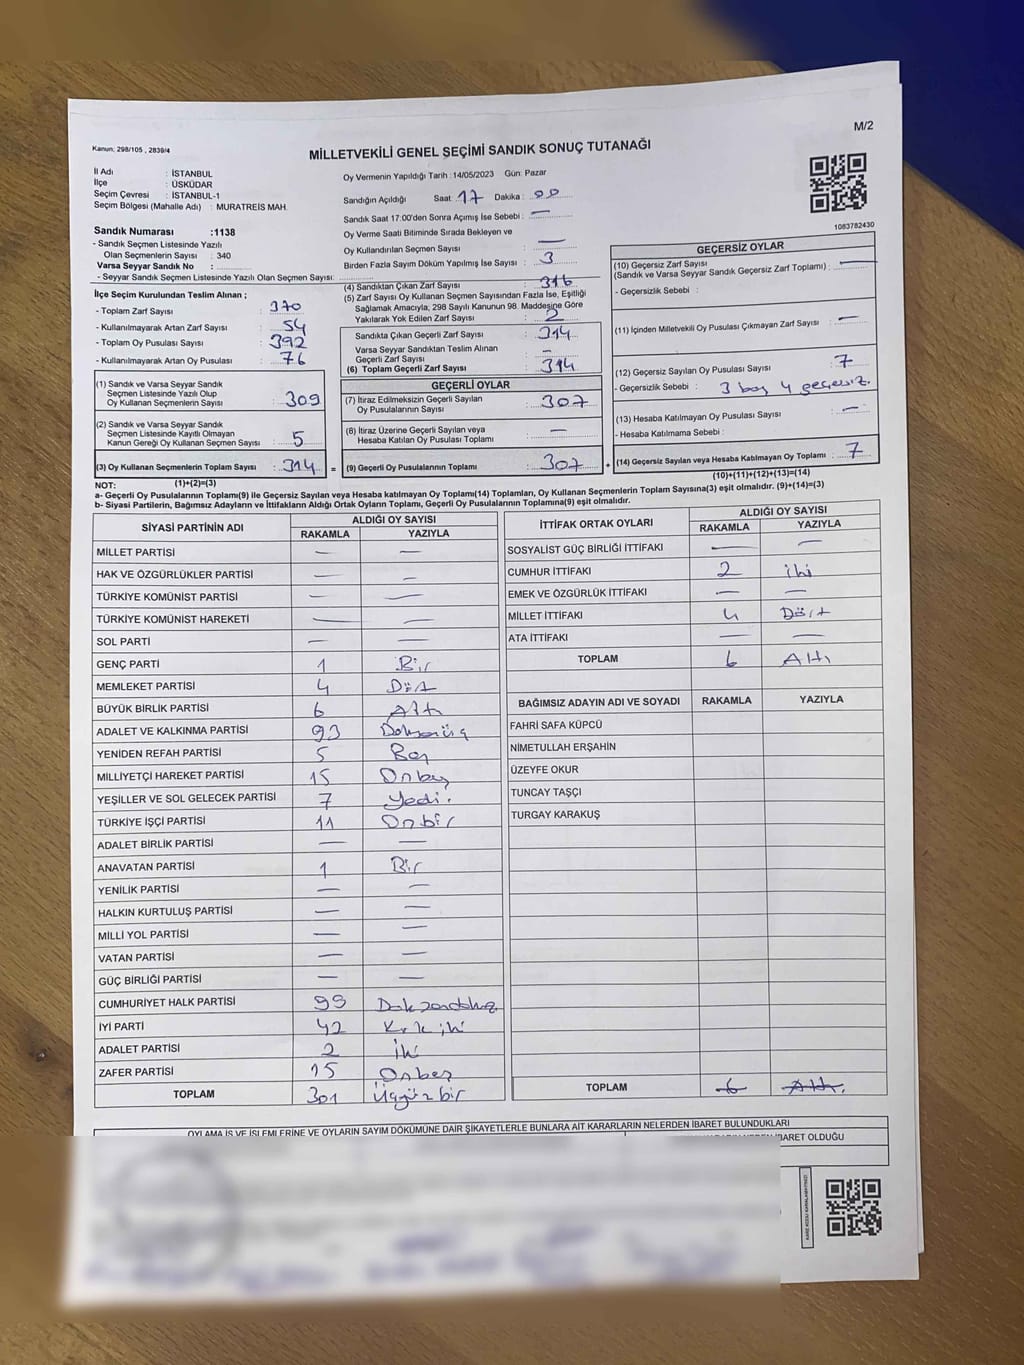 M/2
Kanun: 298/105 , 2839/4
MİLLETVEKİLİ GENEL SEÇİMİ SANDIK SONUÇ TUTANAĞI
İl Adı : İSTANBUL
İlçe : ÜSKÜDAR
Seçim Çevresi : İSTANBUL-1
Seçim Bölgesi (Mahalle Adı) : MURATREİS MAH.
Sandık Numarası :1138
- Sandık Seçmen Listesinde Yazılı
Olan Seçmenlerin Sayısı : 340
Varsa Seyyar Sandık No :
- Seyyar Sandık Seçmen Listesinde Yazılı Olan Seçmen Sayısı:
Oy Vermenin Yapıldığı Tarih :14/05/2023 Gün: Pazar
Sandığın Açıldığı Saat: 17 Dakika : 00
Sandık Saat 17:00'den Sonra Açımış İse Sebebi : —
Oy Verme Saati Bitiminde Sırada Bekleyen ve
Oy Kullandırılan Seçmen Sayısı —
Birden Fazla Sayım Döküm Yapılmış İse Sayısı : 3
1083782430
İlçe Seçim Kurulundan Teslim Alınan ;
- Toplam Zarf Sayısı : 370
- Kullanılmayarak Artan Zarf Sayısı : 54
- Toplam Oy Pusulası Sayısı : 392
- Kullanılmayarak Artan Oy Pusulası : 76
(1) Sandık ve Varsa Seyyar Sandık
Seçmen Listesinde Yazılı Olup
Oy Kullanan Seçmenlerin Sayısı : 309
(2) Sandık ve Varsa Seyyar Sandık
Seçmen Listesinde Kayıtlı Olmayan
Kanun Gereği Oy Kullanan Seçmen Sayısı : 5
(3) Oy Kullanan Seçmenlerin Toplam Sayısı : 314 =
(4) Sandıktan Çıkan Zarf Sayısı : 316
(5) Zarf Sayısı Oy Kullanan Seçmen Sayısından Fazla İse, Eşitliği
Sağlamak Amacıyla; 298 Sayılı Kanunun 98. Maddesine Göre
Yakılarak Yok Edilen Zarf Sayısı : 2
Sandıkta Çıkan Geçerli Zarf Sayısı : 314
Varsa Seyyar Sandıktan Teslim Alınan
Geçerli Zarf Sayısı : —
(6) Toplam Geçerli Zarf Sayısı : 314
GEÇERLİ OYLAR
(7) İtiraz Edilmeksizin Geçerli Sayılan
Oy Pusulasının Sayısı : 307
(8) İtiraz Üzerine Geçerli Sayılan veya
Hesaba Katılan Oy Pusulası Toplamı : —
(9) Geçerli Oy Pusulalarının Toplamı : 307 +
GEÇERSİZ OYLAR
(10) Geçersiz Zarf Sayısı
(Sandık ve Varsa Seyyar Sandık Geçersiz Zarf Toplamı) : —
- Geçersizlik Sebebi :
(11) İçinden Milletvekili Oy Pusulası Çıkmayan Zarf Sayısı : —
(12) Geçersiz Sayılan Oy Pusulası Sayısı : 7
- Geçersizlik Sebebi : 3 boş 4 geçersiz.
(13) Hesaba Katılmayan Oy Pusulası Sayısı : —
- Hesaba Katılmama Sebebi :
(14) Geçersiz Sayılan veya Hesaba Katılmayan Oy Toplamı : 7
NOT: (1)+(2)=(3) (10)+(11)+(12)+(13)=(14)
a- Geçerli Oy Pusulalarının Toplamı(9) ile Geçersiz Sayılan veya Hesaba katılmayan Oy Toplamı(14) Toplamları, Oy Kullanan Seçmenlerin Toplam Sayısına(3) eşit olmalıdır. (9)+(14)=(3)
b- Siyasi Partilerin, Bağımsız Adayların ve İttifakların Aldığı Ortak Oyların Toplamı, Geçerli Oy Pusulalarının Toplamına(9) eşit olmalıdır.
SİYASİ PARTİNİN ADI ALDIĞI OY SAYISI
RAKAMLA YAZIYLA
MİLLET PARTİSİ — —
HAK VE ÖZGÜRLÜKLER PARTİSİ — —
TÜRKİYE KOMÜNİST PARTİSİ — —
TÜRKİYE KOMÜNİST HAREKETİ — —
SOL PARTİ — —
GENÇ PARTİ 1 Bir
MEMLEKET PARTİSİ 4 Dört
BÜYÜK BİRLİK PARTİSİ 6 Altı
ADALET VE KALKINMA PARTİSİ 93 Doksanüç
YENİDEN REFAH PARTİSİ 5 Beş
MİLLİYETÇİ HAREKET PARTİSİ 15 Onbeş
YEŞİLLER VE SOL GELECEK PARTİSİ 7 Yedi.
TÜRKİYE İŞÇİ PARTİSİ 11 Onbir
ADALET BİRLİK PARTİSİ — —
ANAVATAN PARTİSİ 1 Bir
YENİLİK PARTİSİ — —
HALKIN KURTULUŞ PARTİSİ — —
MİLLİ YOL PARTİSİ — —
VATAN PARTİSİ — —
GÜÇ BİRLİĞİ PARTİSİ — —
CUMHURİYET HALK PARTİSİ 99 Doksandokuz
İYİ PARTİ 42 Kırk iki
ADALET PARTİSİ 2 İki
ZAFER PARTİSİ 15 Onbeş
TOPLAM 301 Üçyüz bir
İTTİFAK ORTAK OYLARI ALDIĞI OY SAYISI
RAKAMLA YAZIYLA
SOSYALİST GÜÇ BİRLİĞİ İTTİFAKI — —
CUMHUR İTTİFAKI 2 iki
EMEK VE ÖZGÜRLÜK İTTİFAKI — —
MİLLET İTTİFAKI 4 Dört
ATA İTTİFAKI — —
TOPLAM 6 Altı
BAĞIMSIZ ADAYIN ADI VE SOYADI RAKAMLA YAZIYLA
FAHRİ SAFA KÜPCÜ
NİMETULLAH ERŞAHİN
ÜZEYFE OKUR
TUNCAY TAŞÇI
TURGAY KARAKUŞ
TOPLAM 6 Altı.
OYLAMA İŞ VE İŞLEMLERİNE VE OYLARIN SAYIM DÖKÜMÜNE DAİR ŞİKAYETLERLE BUNLARA AİT KARARLARIN NELERDEN İBARET BULUNDUKLARI
İBARET OLDUĞU